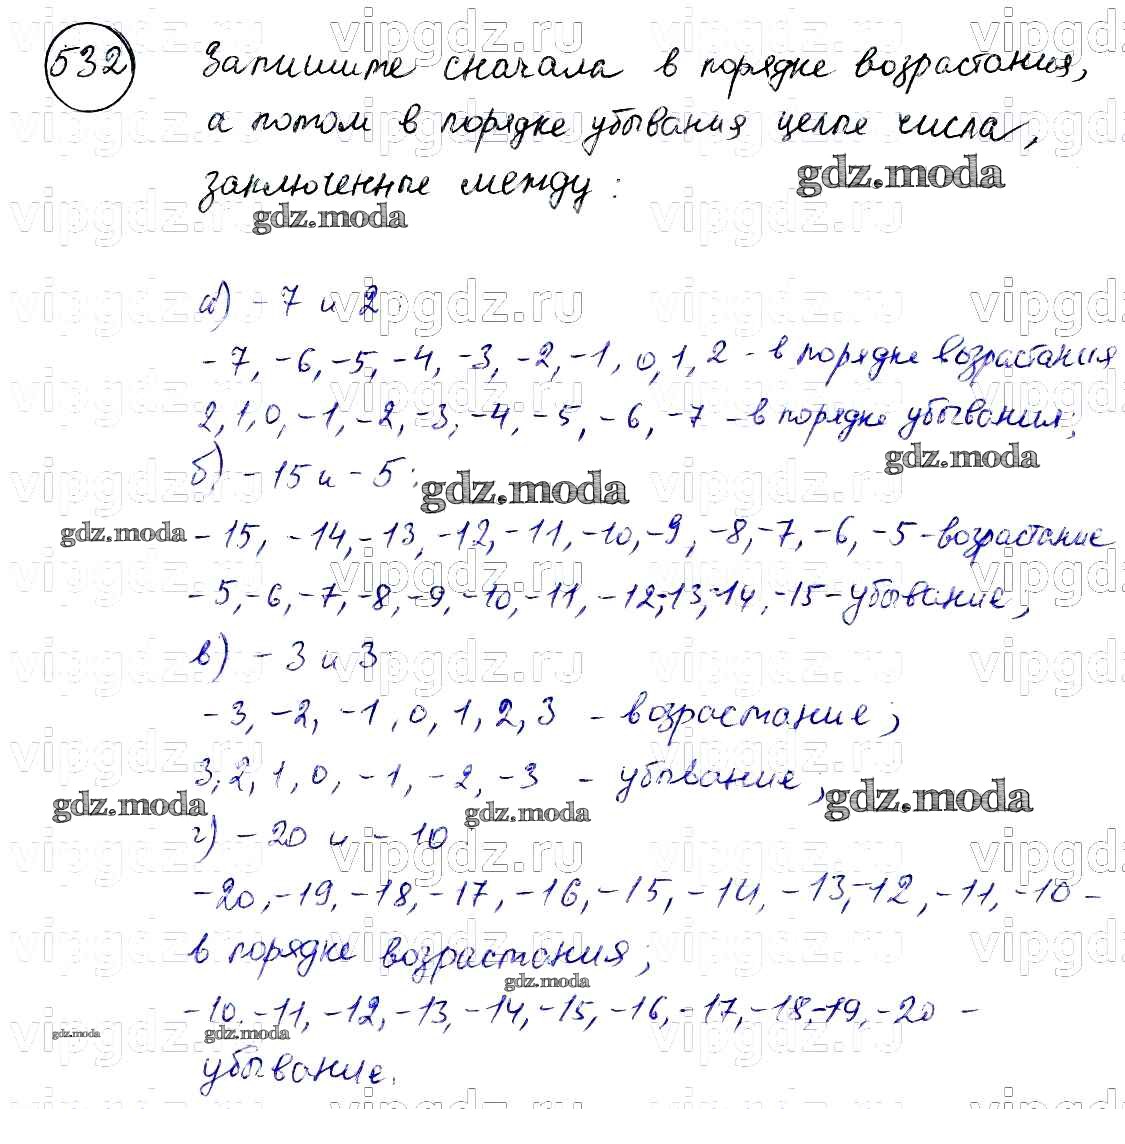 532 Запишите сначала в порядке возрастания,
а потом в порядке убывания целые числа,
заключенные между:
gdz.moda
gdz.moda
а) -7 и 2
-7, -6, -5, -4, -3, -2, -1, 0, 1, 2 - в порядке возрастания
2, 1, 0, -1, -2, -3, -4, -5, -6, -7 - в порядке убывания;
gdz.moda
б) -15 и -5:
gdz.moda
gdz.moda
-15, -14, -13, -12, -11, -10, -9, -8, -7, -6, -5 - возрастание
-5, -6, -7, -8, -9, -10, -11, -12, -13, -14, -15 - убывание;
в) -3 и 3
-3, -2, -1, 0, 1, 2, 3 - возрастание;
3, 2, 1, 0, -1, -2, -3 - убывание;
gdz.moda
gdz.moda
gdz.moda
г) -20 и -10
-20, -19, -18, -17, -16, -15, -14, -13, -12, -11, -10 -
в порядке возрастания;
gdz.moda
-10, -11, -12, -13, -14, -15, -16, -17, -18, -19, -20 -
gdz.moda
gdz.moda
убывание.
vipgdz.ru